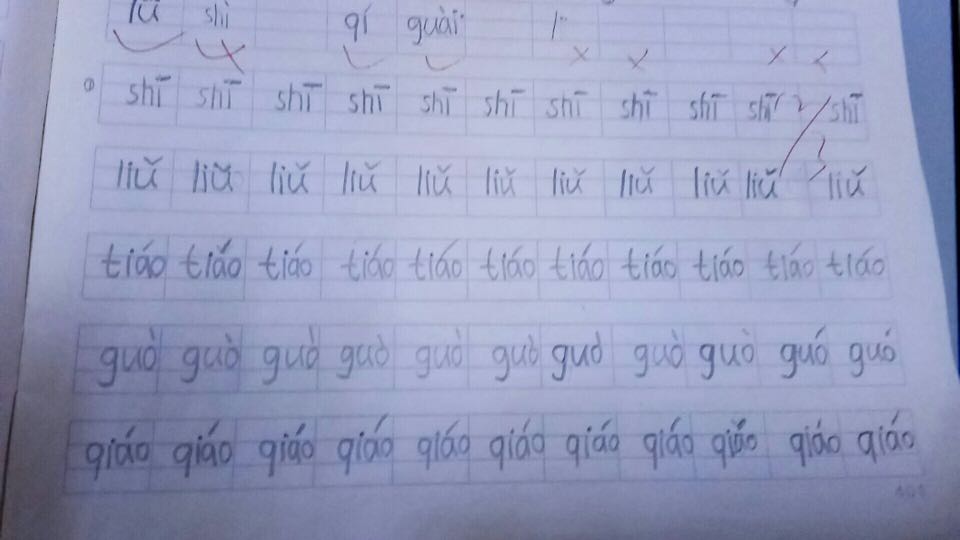 shì qí guài
① shī shī shī shī shī shī shī shī shī shī shī
liǔ liǔ liǔ liǔ liǔ liǔ liǔ liǔ liǔ liǔ liǔ
tiáo tiǎo tiáo tiáo tiáo tiáo tiáo tiáo tiáo tiáo tiáo
guò guò guò guò guò guò guò guò guò guó guó
qiáo qiáo qiáo qiáo qiáo qiáo qiáo qiáo qiǎo qiáo qiáo